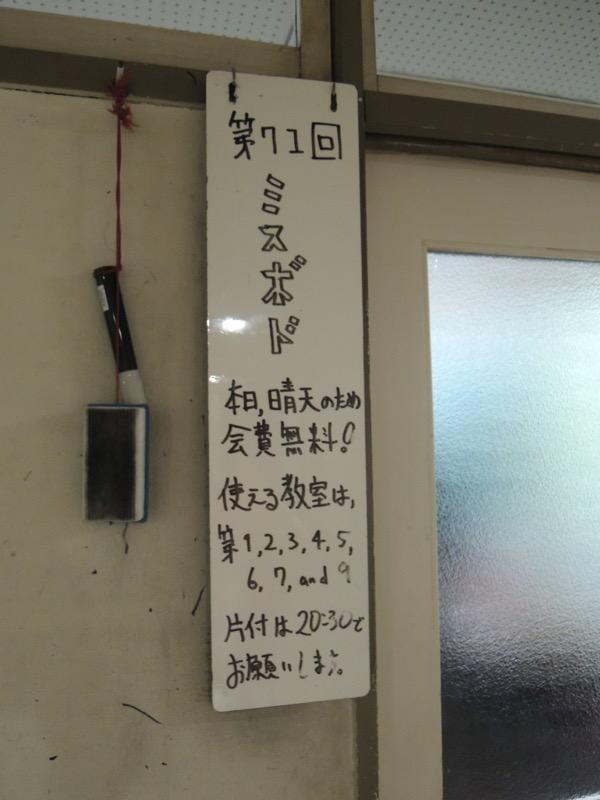 第71回
ミスボド
本日,晴天のため
会費無料!
使える教室は,
第1,2,3,4,5,
6,7,and 9
片付は20:30で
お願いします。